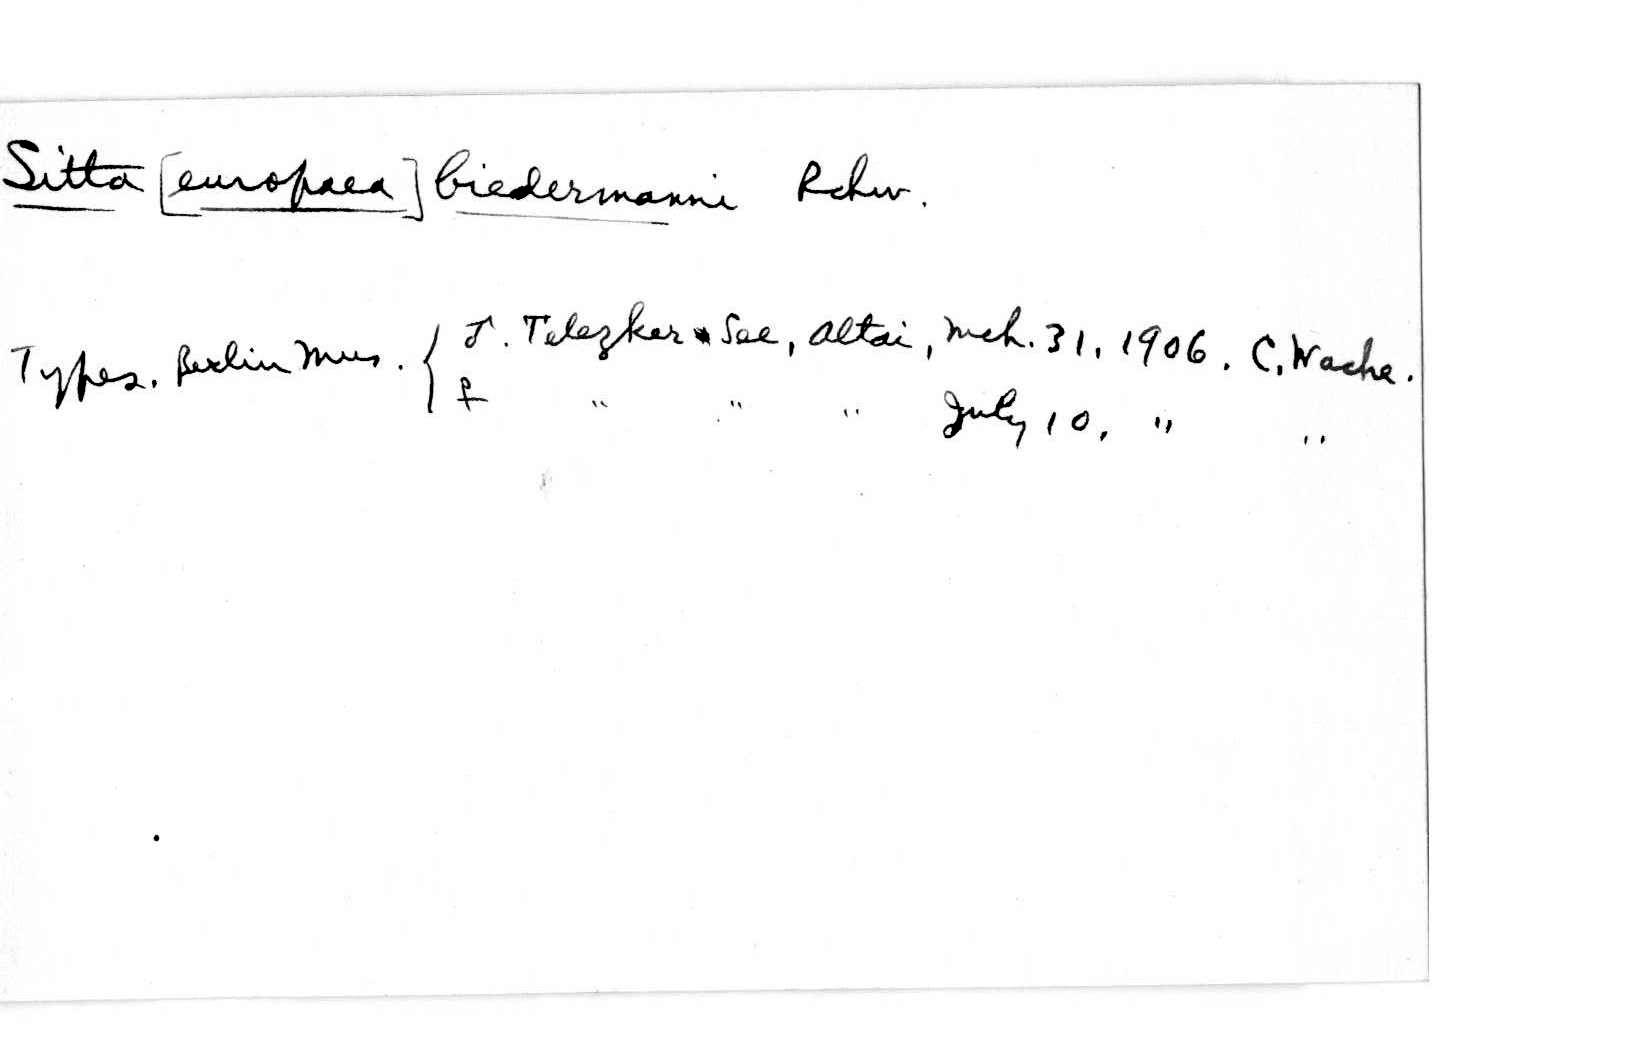 Sitta [europaea] biedermanni Rchw.
Types. Berlin Mus. { ♂. Telezker See, Altai, Mch. 31, 1906. C. Wache.
♀ " " " July 10, " "